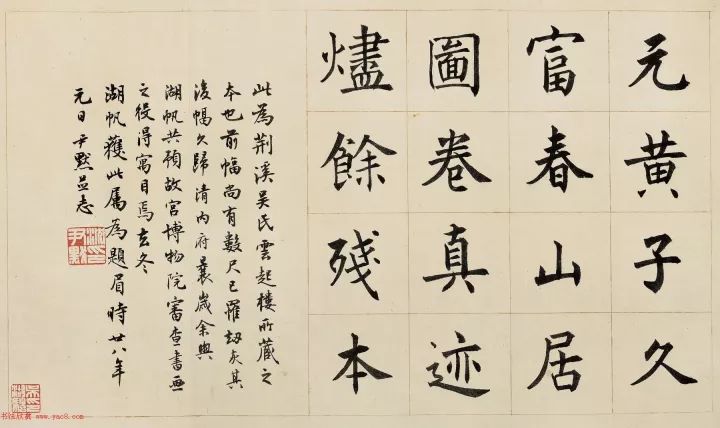 元黄子久
富春山居
圖卷真迹
燼餘殘本
此為荆溪吴氏雲起樓所藏之
本也前幅尚有數尺已罹劫矣其
後幅久歸清内府曩歲余與
湖帆共預故宫博物院審查書画
之役得寓目焉去冬
湖帆獲此屬為題眉時廿八年
元日尹默并志
书法欣赏 www.yac8.com